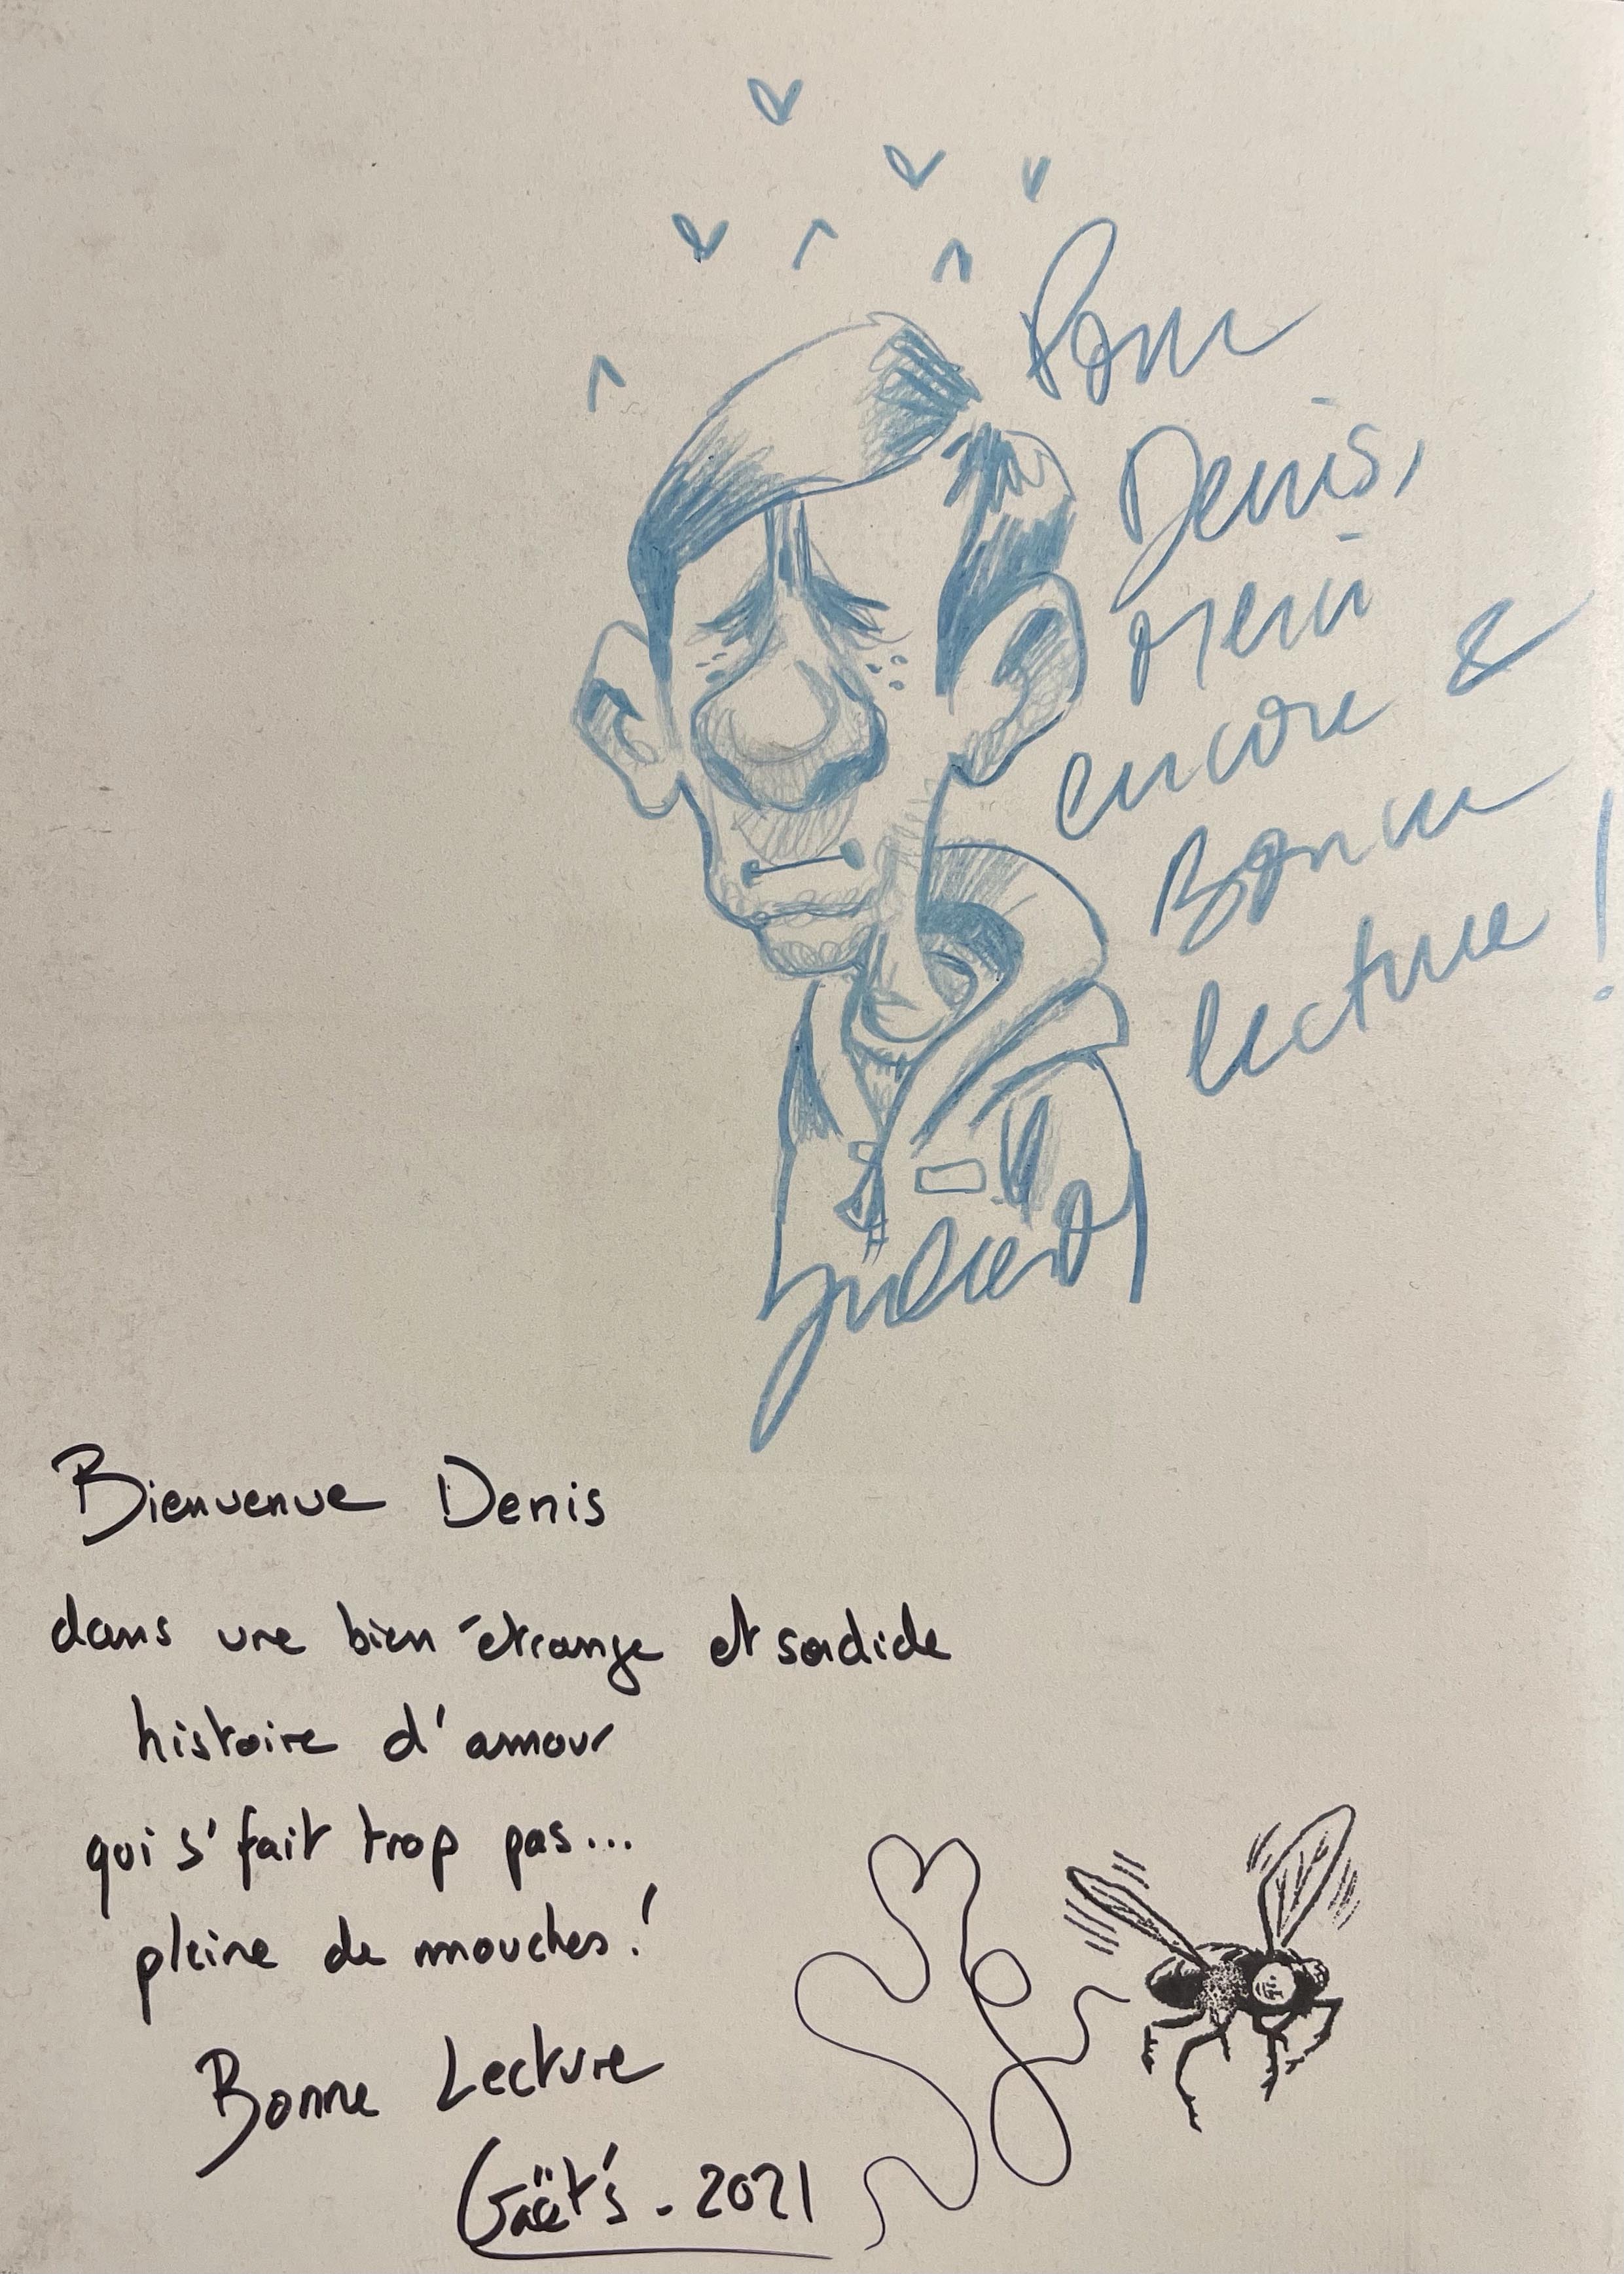 Pour
Denis,
Merci
encore &
Bonne
lecture !
Bienvenue Denis
dans une bien étrange et sordide
histoire d'amour
qui s'fait trop pas...
pleine de mouches !
Bonne Lecture
Gaët's - 2021